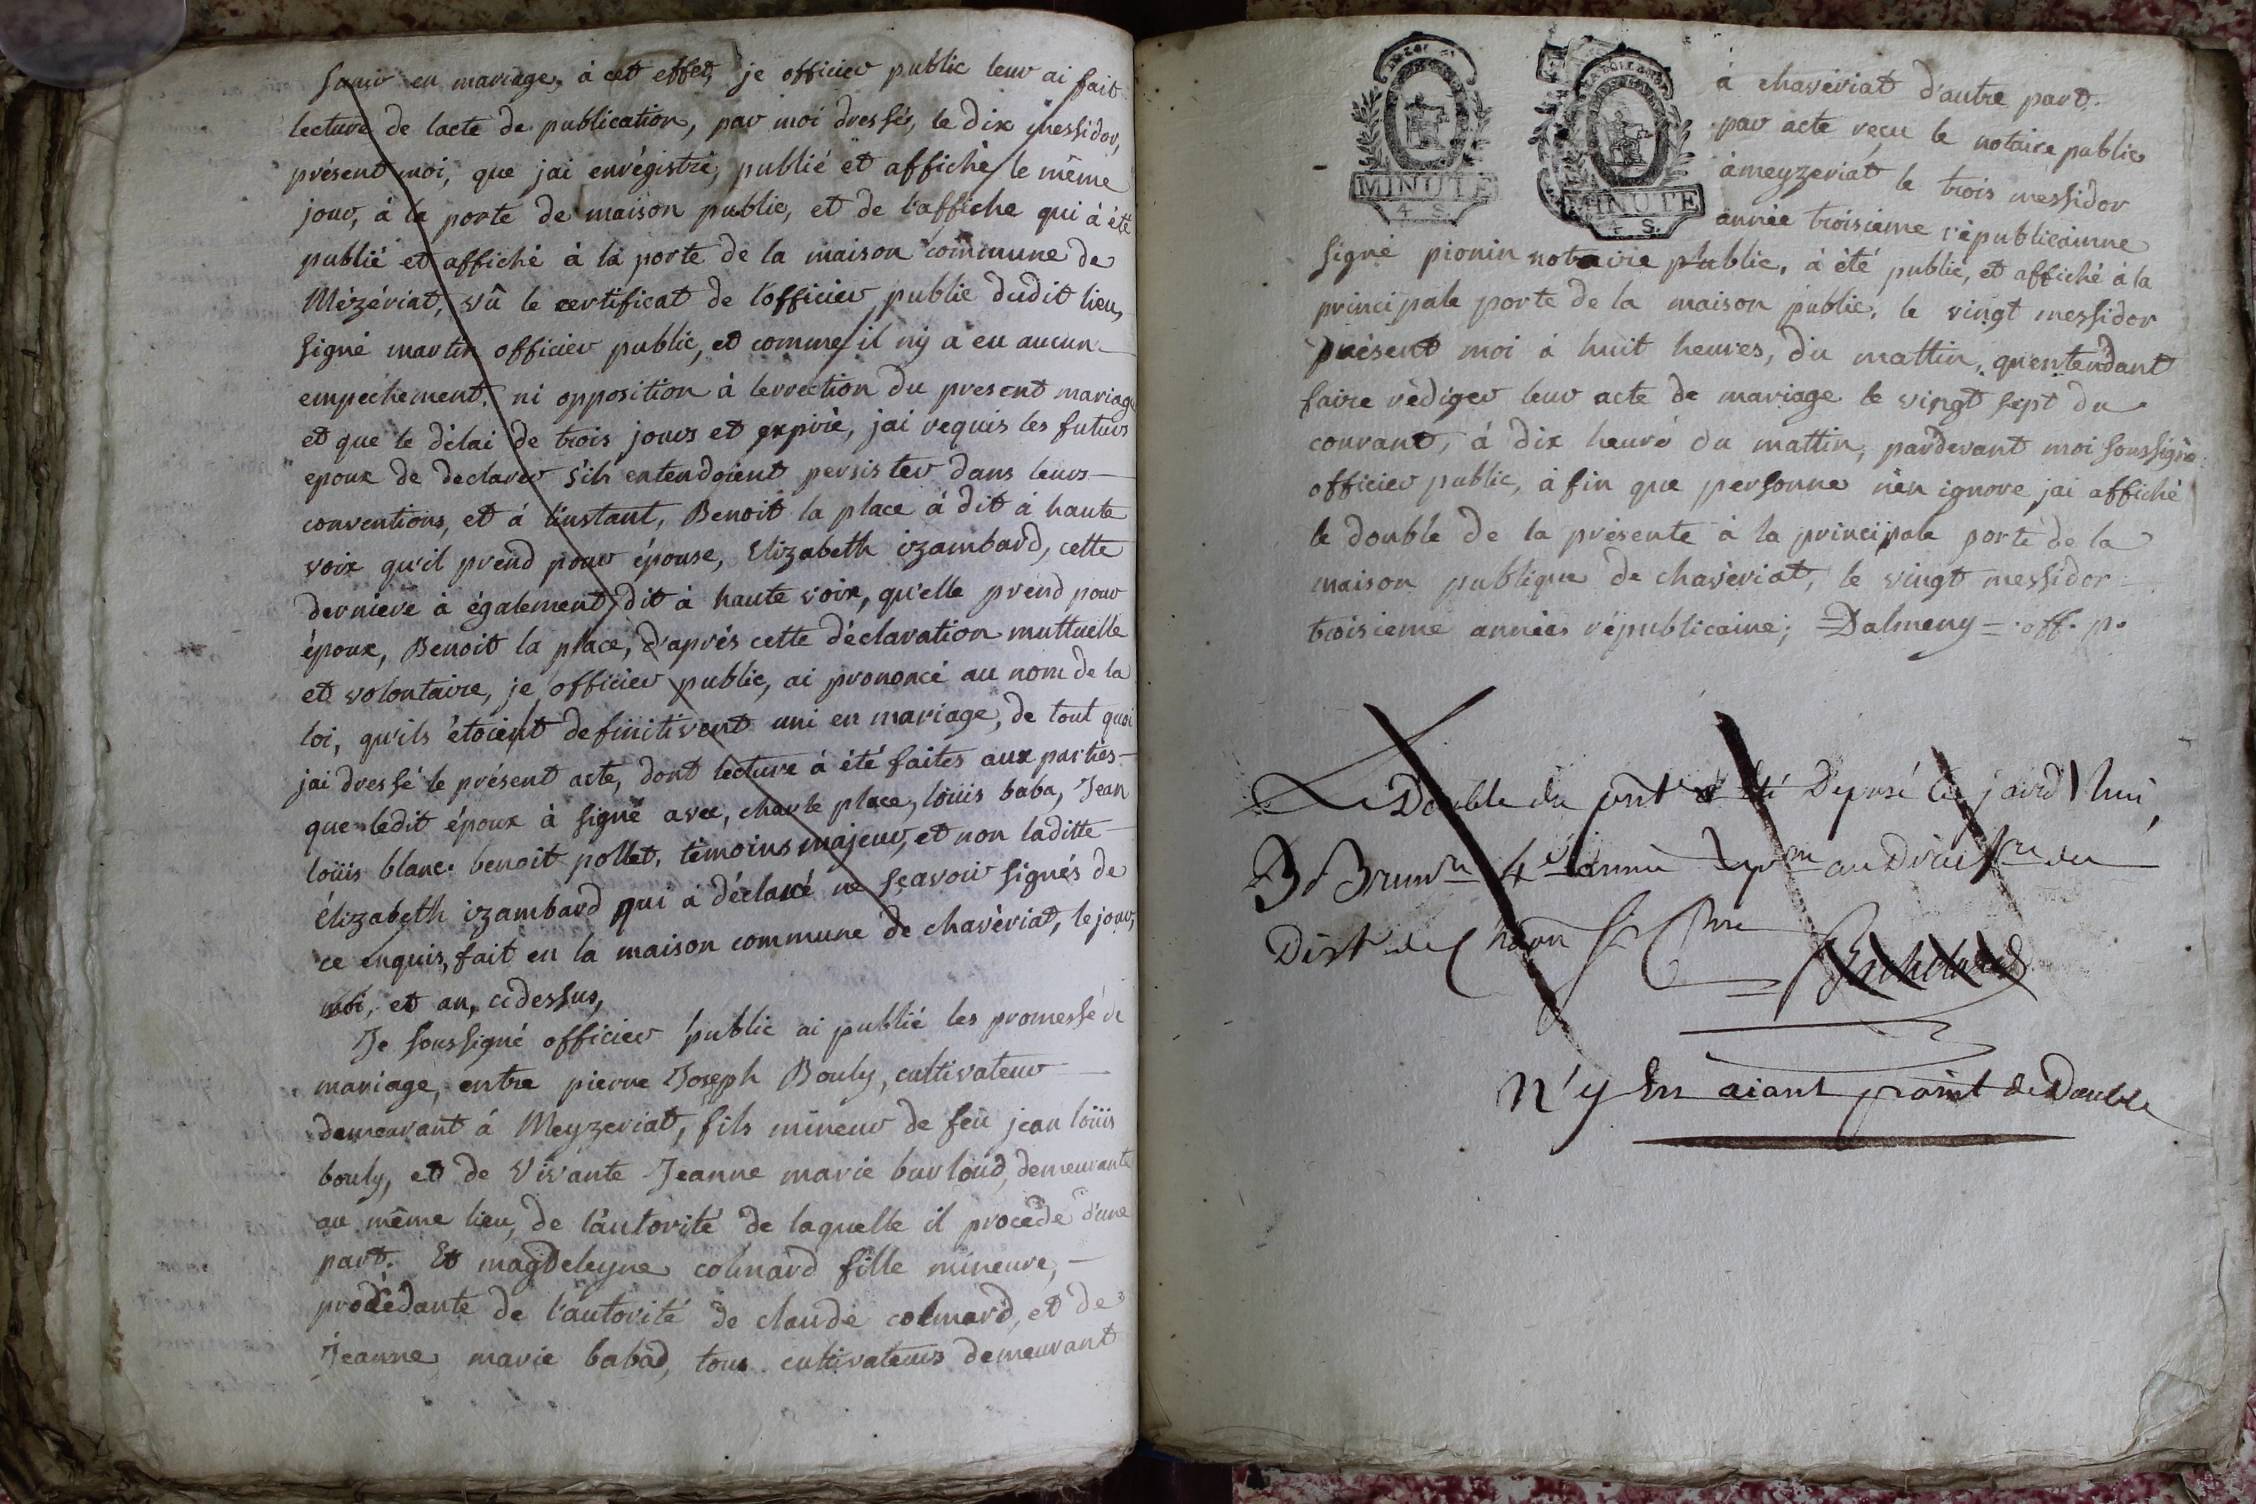 s'unir en mariage, à cet effet, je officier public leur ai fait
lecture de lacte de publication, par moi dressés, le dix messidor,
présent moi, que jai enrégistré, publié et affiché le même
jour, à la porte de maison public, et de l'affiche qui à été
publié et affiché à la porte de la maison commune de
Mézériat, vû le certificat de l'officier public dudit lieu,
signé martin officier public, et comme il ny a eu aucun
empechement, ni opposition à lerrection du present mariage
et que le délai de trois jours et expiré, jai requis les futurs
epoux de declarer s'ils entendoient persister dans leurs
conventions, et à linstant, Benoit la place à dit à haute
voix qu'il prend pour épouse, Elizabeth izambard, cette
derniere à également dit à haute voix, qu'elle prend pour
époux, Benoit la place, d'aprés cette déclaration muttuelle
et volontaire, je officier public, ai prononcé au nom de la
loi, qu'ils étoient definitivent uni en mariage, de tout quoi
jai dressé le présent acte, dont lecture à été faites aux parties
que ledit époux à signé avec, charle place, loüis baba, Jean
loüis blanc. benoit pollet, témoins majeur, et non laditte
élizabeth izambard qui à déclaré ne sçavoir signés de
ce enquis, fait en la maison commune de chavériat, le jour,
moi, et an, cidessus,
Je soussigné officier public ai publié les promesse de
mariage, entre pierre Joseph Bouly, cultivateur
demeurant à Meyzeriat, fils mineur de feu jean loüis
bouly, et de vivante Jeanne marie burloud, demeurante
au même lieu, de l'autorité de laquelle il procéde d'une
part. Et magdeleyne colmard fille mineure,
procédante de l'autorité de claude colmard, et de
Jeanne marie babad, tous cultivateurs demeurant
MINUTE
4 S.
MINUTE
4 S.
à chavériat d'autre part.
par acte reçu le notaire public
à meyzeriat le trois messidor
année troisieme républicainne
signé pionin notaire public, à été publié, et affiché à la
principale porte de la maison public, le vingt messidor
présent moi à huit heures, du mattin, qu'entendant
faire rédiger leur acte de mariage le vingt sept du
courant, à dix heure du mattin, pardevant moi soussigné
officier public, à fin que personne n'en ignore, jai affiché
le double de la présente à la principale porte de la
maison publique de chavériat, le vingt messidor
troisieme années républicaine; Dalmeny off. p.
Le Double du pnt a été Deposé ce jourd'hui
Brumre 4e année
n'y en aiant point de Double